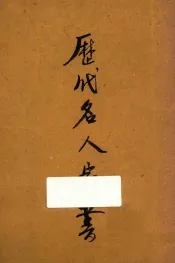 歷代名人
書